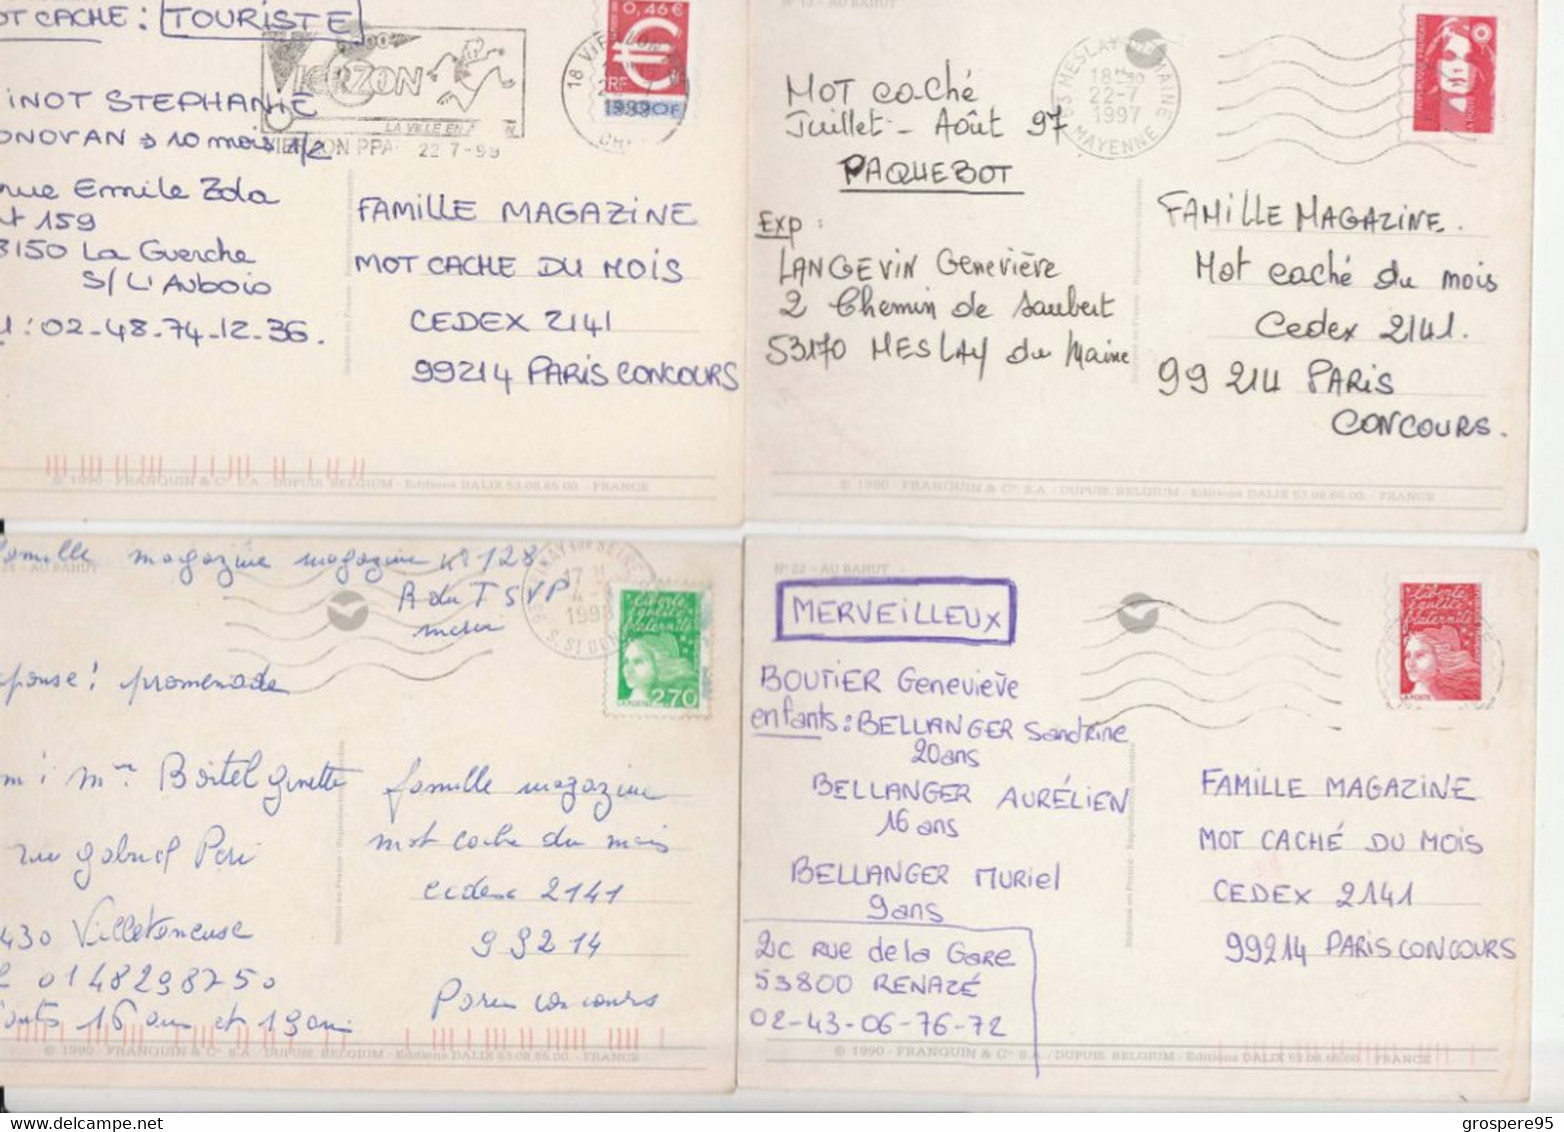 OT CACHE : TOURISTE
INOT STEPHANIE
ONOVAN → 10 mois 1/2
nue Emile Zola
t 159
8150 La Guerche
S/L'Aubois
l : 02-48-74-12-36.
VIERZON
LA VILLE EN
22 7-99
0,46 €
RF
1999
18 VIERZON
FAMILLE MAGAZINE
MOT CACHE DU MOIS
CEDEX 2141
99214 PARIS CONCOURS
© 1990 - FRANQUIN & Cie S.A. / DUPUIS BELGIUM - Editions DALIX 53.08.65.00 - FRANCE
N° 13 - AU BAHUT
MOT caché
Juillet - Août 97
PAQUEBOT
Exp :
LANGEVIN Geneviève
2 Chemin de Saubert
53170 MESLAY du Maine
53 MESLAY DU MAINE
18H30
22-7
1997
MAYENNE
FAMILLE MAGAZINE.
Mot caché du mois
Cedex 2141.
99 214 PARIS
CONCOURS.
© 1990 - FRANQUIN & Cie S.A. - DUPUIS BELGIUM - Editions DALIX 53.08.65.00 - FRANCE
- AU BAHUT
famille magazine magazine n° 128
R du T S V P
merci
ponse : promenade
m : Mme Boitel ginette
rue gabriel Peri
430 Villetaneuse
0148298750
16 ans et 19 ans
17 H
1998
liberté égalité fraternité
2,70
LA POSTE
famille magazine
mot cache du mois
cedex 2141
99214
Paris concours
© 1990 - FRANQUIN & Cie S.A. / DUPUIS BELGIUM - Editions DALIX 53.08.65.00 - FRANCE
N° 22 - AU BAHUT
MERVEILLEUX
BOUTIER Geneviève
enfants : BELLANGER Sandrine
20 ans
BELLANGER AURÉLIEN
16 ans
BELLANGER MURIEL
9 ans
2C RUE de la Gare
53800 RENAZÉ
02-43-06-76-72
liberté égalité fraternité
LA POSTE
FAMILLE MAGAZINE
MOT CACHÉ DU MOIS
CEDEX 2141
99214 PARIS CONCOURS
© 1990 - FRANQUIN & Cie S.A. / DUPUIS BELGIUM - Editions DALIX 53.08.65.00 - FRANCE
grospere95